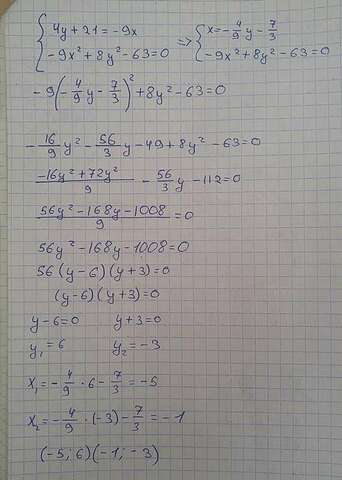 { 4y+21=-9x => { x=-4/9y-7/3
{ -9x²+8y²-63=0 { -9x²+8y²-63=0
-9(-4/9y-7/3)²+8y²-63=0
-16/9y²-56/3y-49+8y²-63=0
-16y²+72y²/9 -56/3y-112=0
56y²-168y-1008/9=0
56y²-168y-1008=0
56(y-6)(y+3)=0
(y-6)(y+3)=0
y-6=0 y+3=0
y₁=6 y₂=-3
x₁=-4/9·6-7/3=-5
x₂=-4/9·(-3)-7/3=-1
(-5;6)(-1;-3)